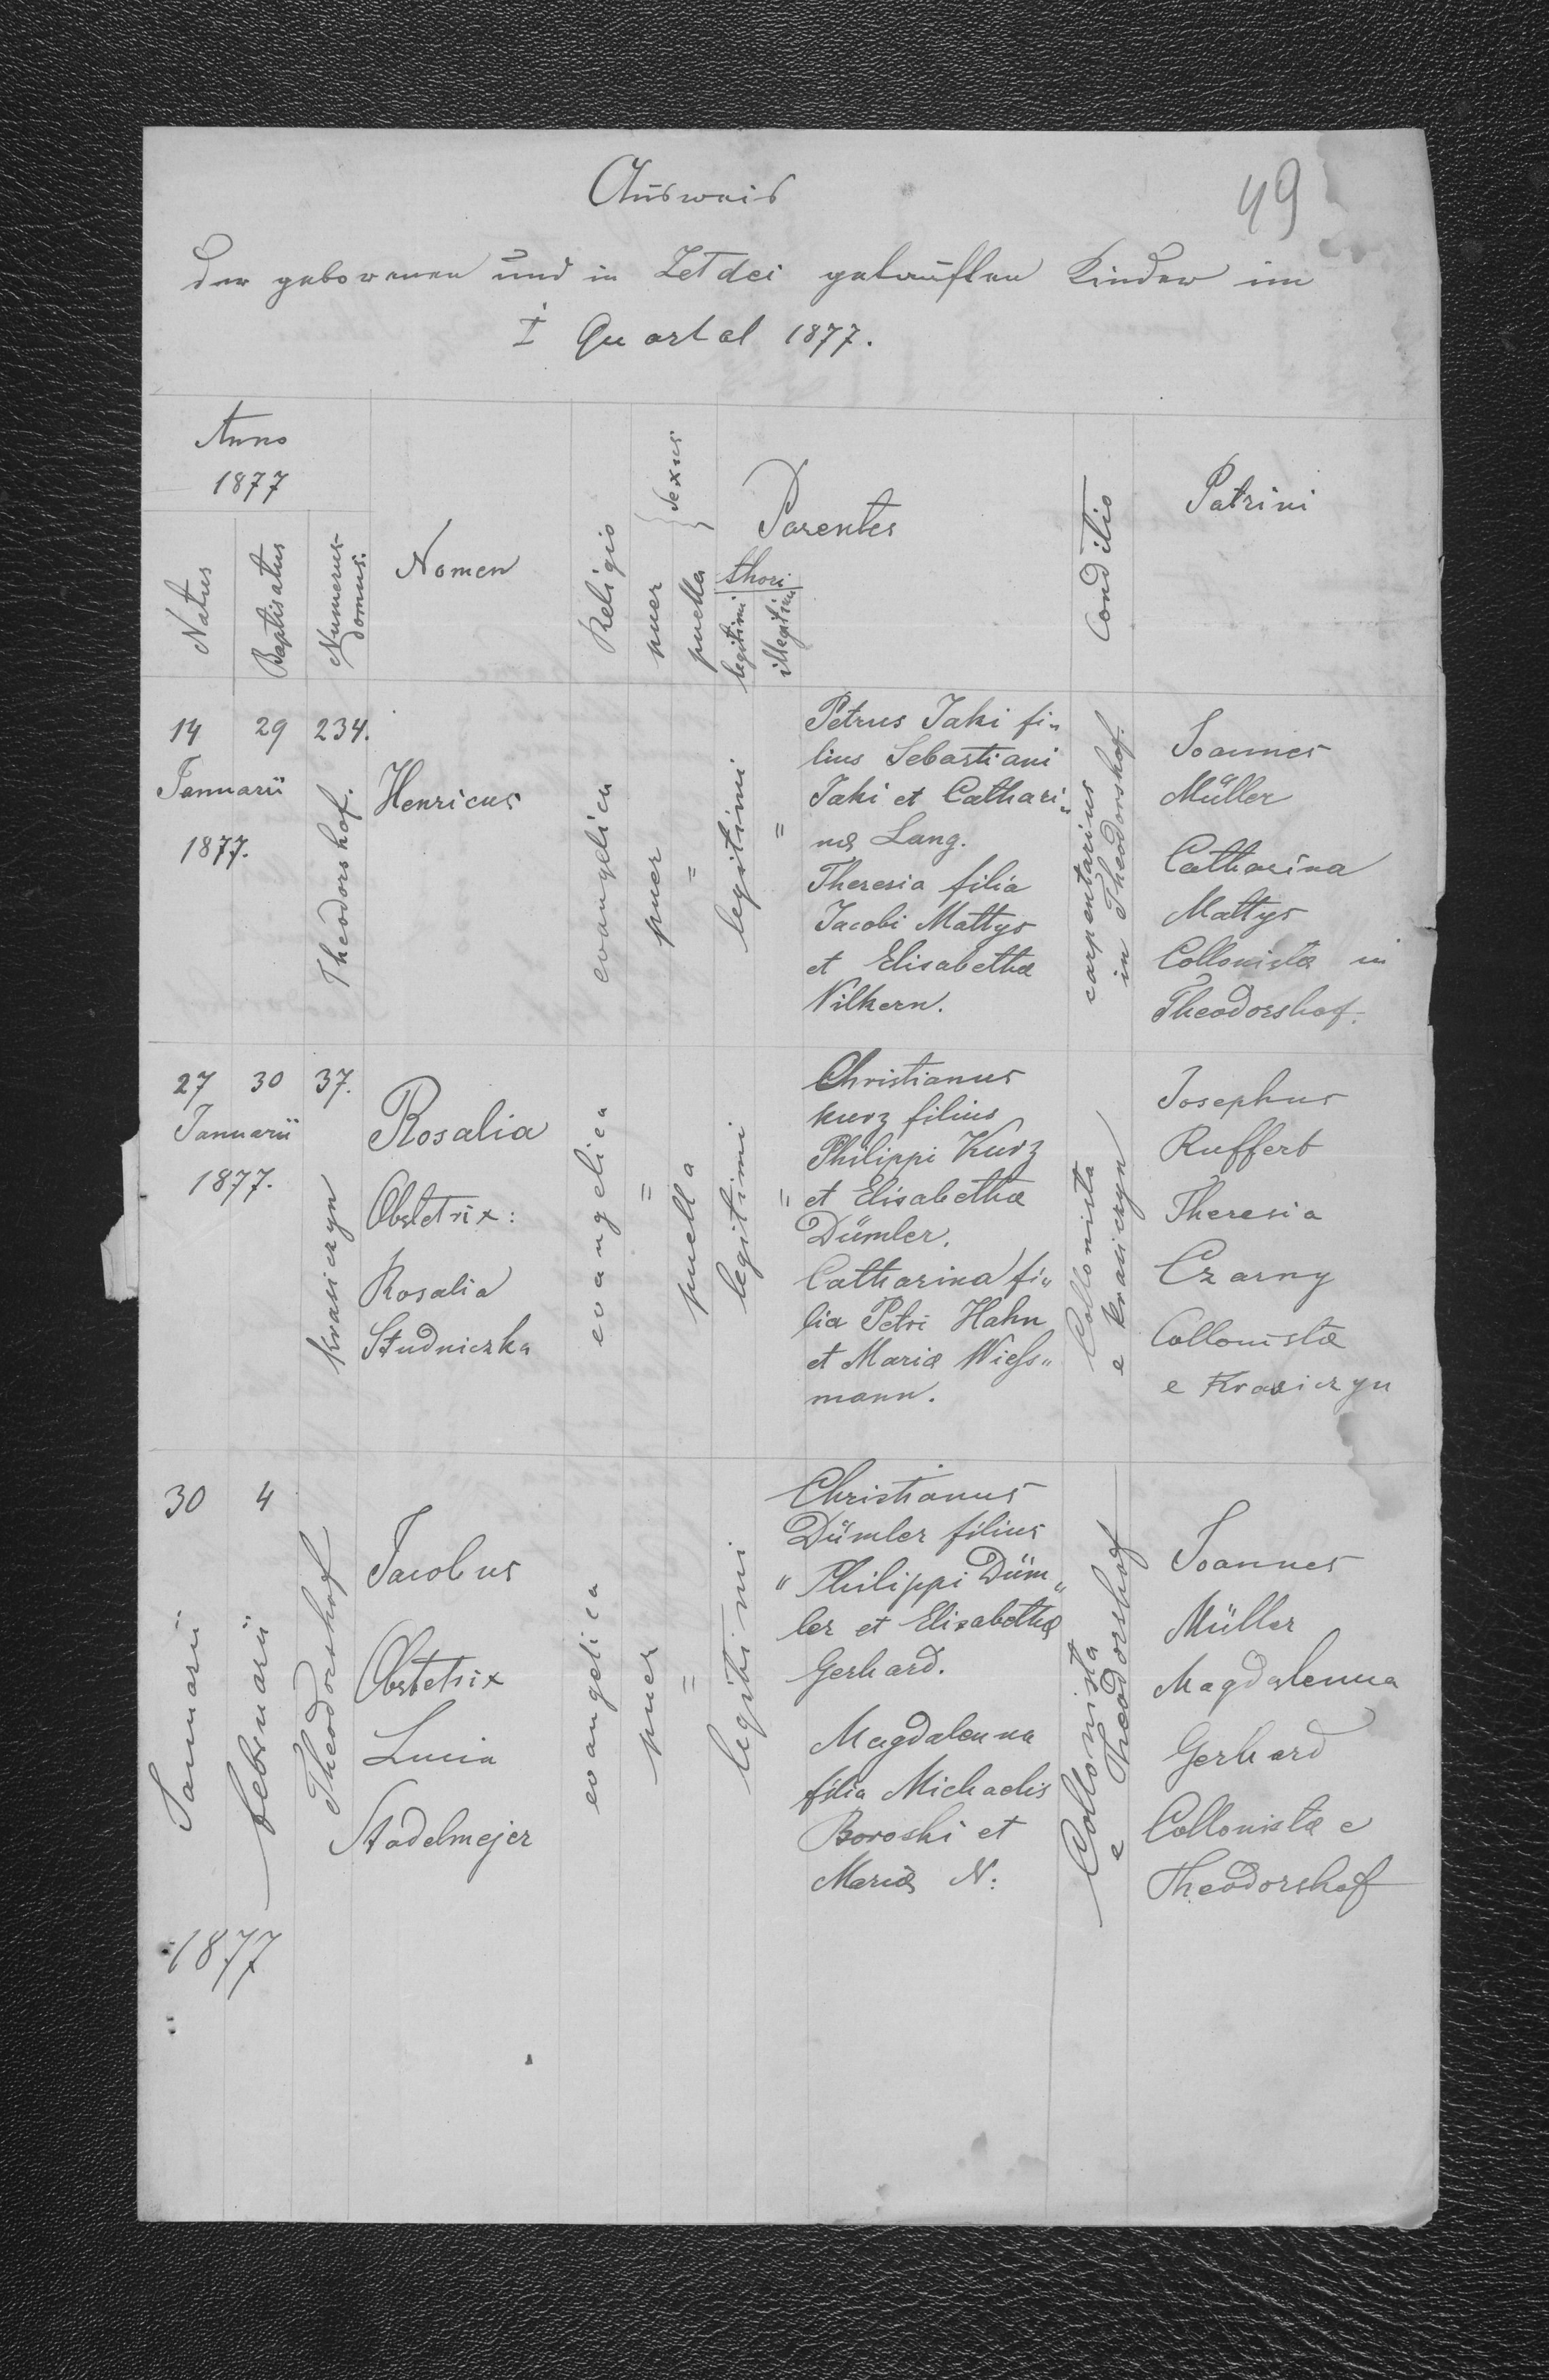 49
Ausweis
der geborenen und in Zetdei getauften Kinder im
I Quartal 1877.
Anno
1877
Natus
Baptisatus
Numerus
domus.
Nomen
Religio
puer
puella
sexus
Parentes
thori
legitimi
illegitimi
Conditio
Patrini
14 29 234.
Januarii
1877.
Theodorshof.
Henricus
evangelica
puer
=
legitimi
=
Petrus Jaki fi„
lius Sebastiani
Jaki et Cathari„
næ Lang.
Theresia filia
Jacobi Mattys
et Elisabethæ
Vilkern.
carpentarius
in Theodorshof.
Joannes
Müller
Catharina
Mattys
Collonistæ in
Theodorshof.
27 30 37.
Januarii
1877.
Krasiczyn
Rosalia
Obstetrix:
Rosalia
Studniczka
evangelica
=
puella
legitimi
=
Christianus
Kurz filius
Philippi Kurz
et Elisabethæ
Dümler.
Catharina fi„
lia Petri Hahn
et Mariæ Wiess„
mann.
Collonista
e Krasiczyn
Josephus
Ruffert
Theresia
Czarny
Collonistæ
e Krasiczyn
30 4
Januarii
februarii
1877
Theodorshof
Jacobus
Obstetrix
Lucia
Stadelmejer
evangelica
puer
=
legitimi
Christianus
Dümler filius
„ Philippi Düm„
ler et Elisabethæ
Gerhard.
Magdalenna
filia Michaelis
Boroski et
Mariæ N:
Collonista
e Theodorshof
Joannes
Müller
Magdalenna
Gerhard
Collonistæ e
Theodorshof